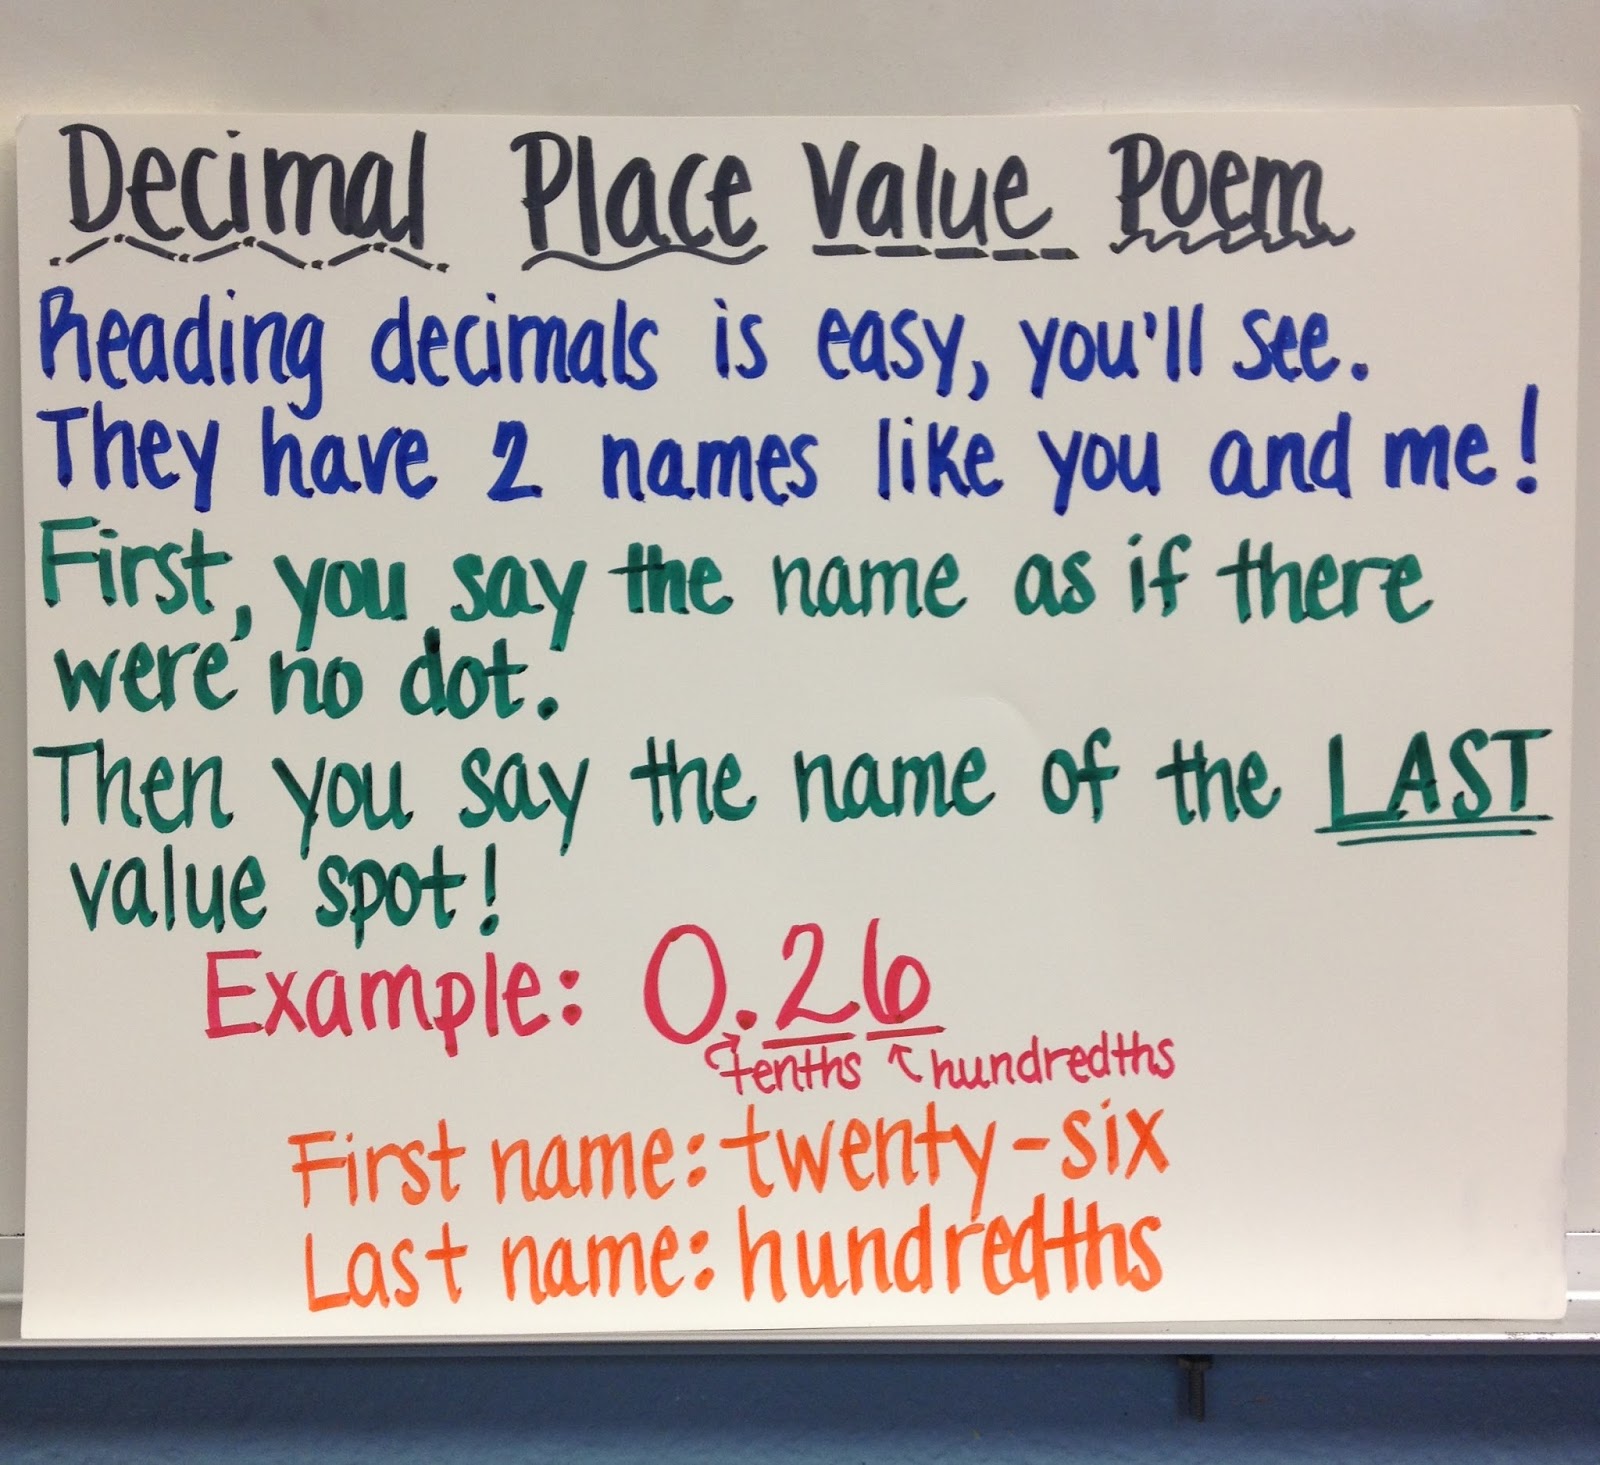 Decimal Place Value Poem
Reading decimals is easy, you'll see.
They have 2 names like you and me!
First, you say the name as if there
were no dot.
Then you say the name of the LAST
value spot!
Example: 0.26
tenths hundredths
First name: twenty-six
Last name: hundredths